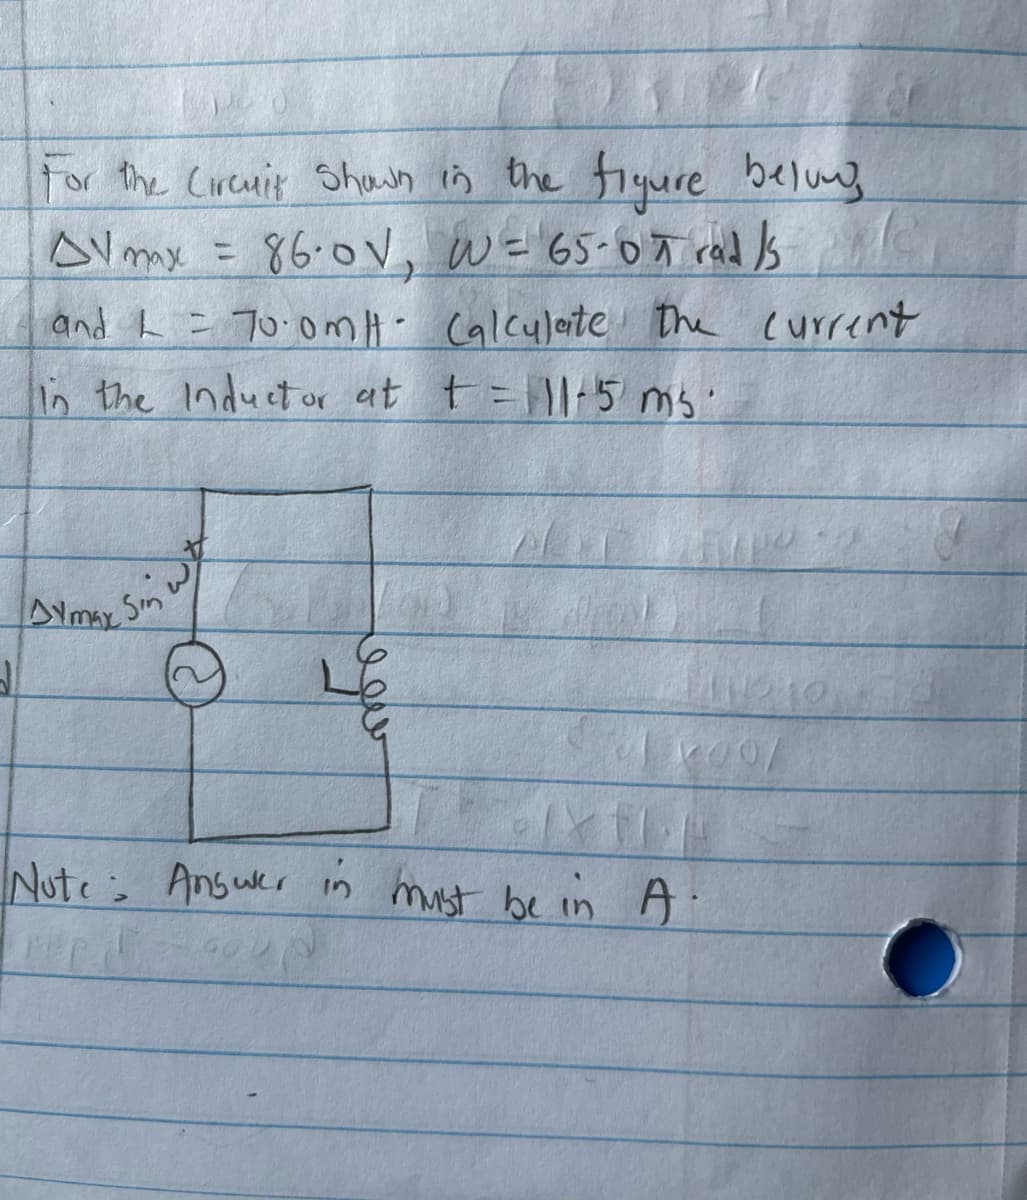 For the Circuit Shown in the figure below,
ΔVmax = 86.0V, W = 65.0π rad/s
and L = 70.0mH. Calculate the current
in the Inductor at t = 11.5 ms.
ΔVmax Sin wt
L
Note; Answer in must be in A.